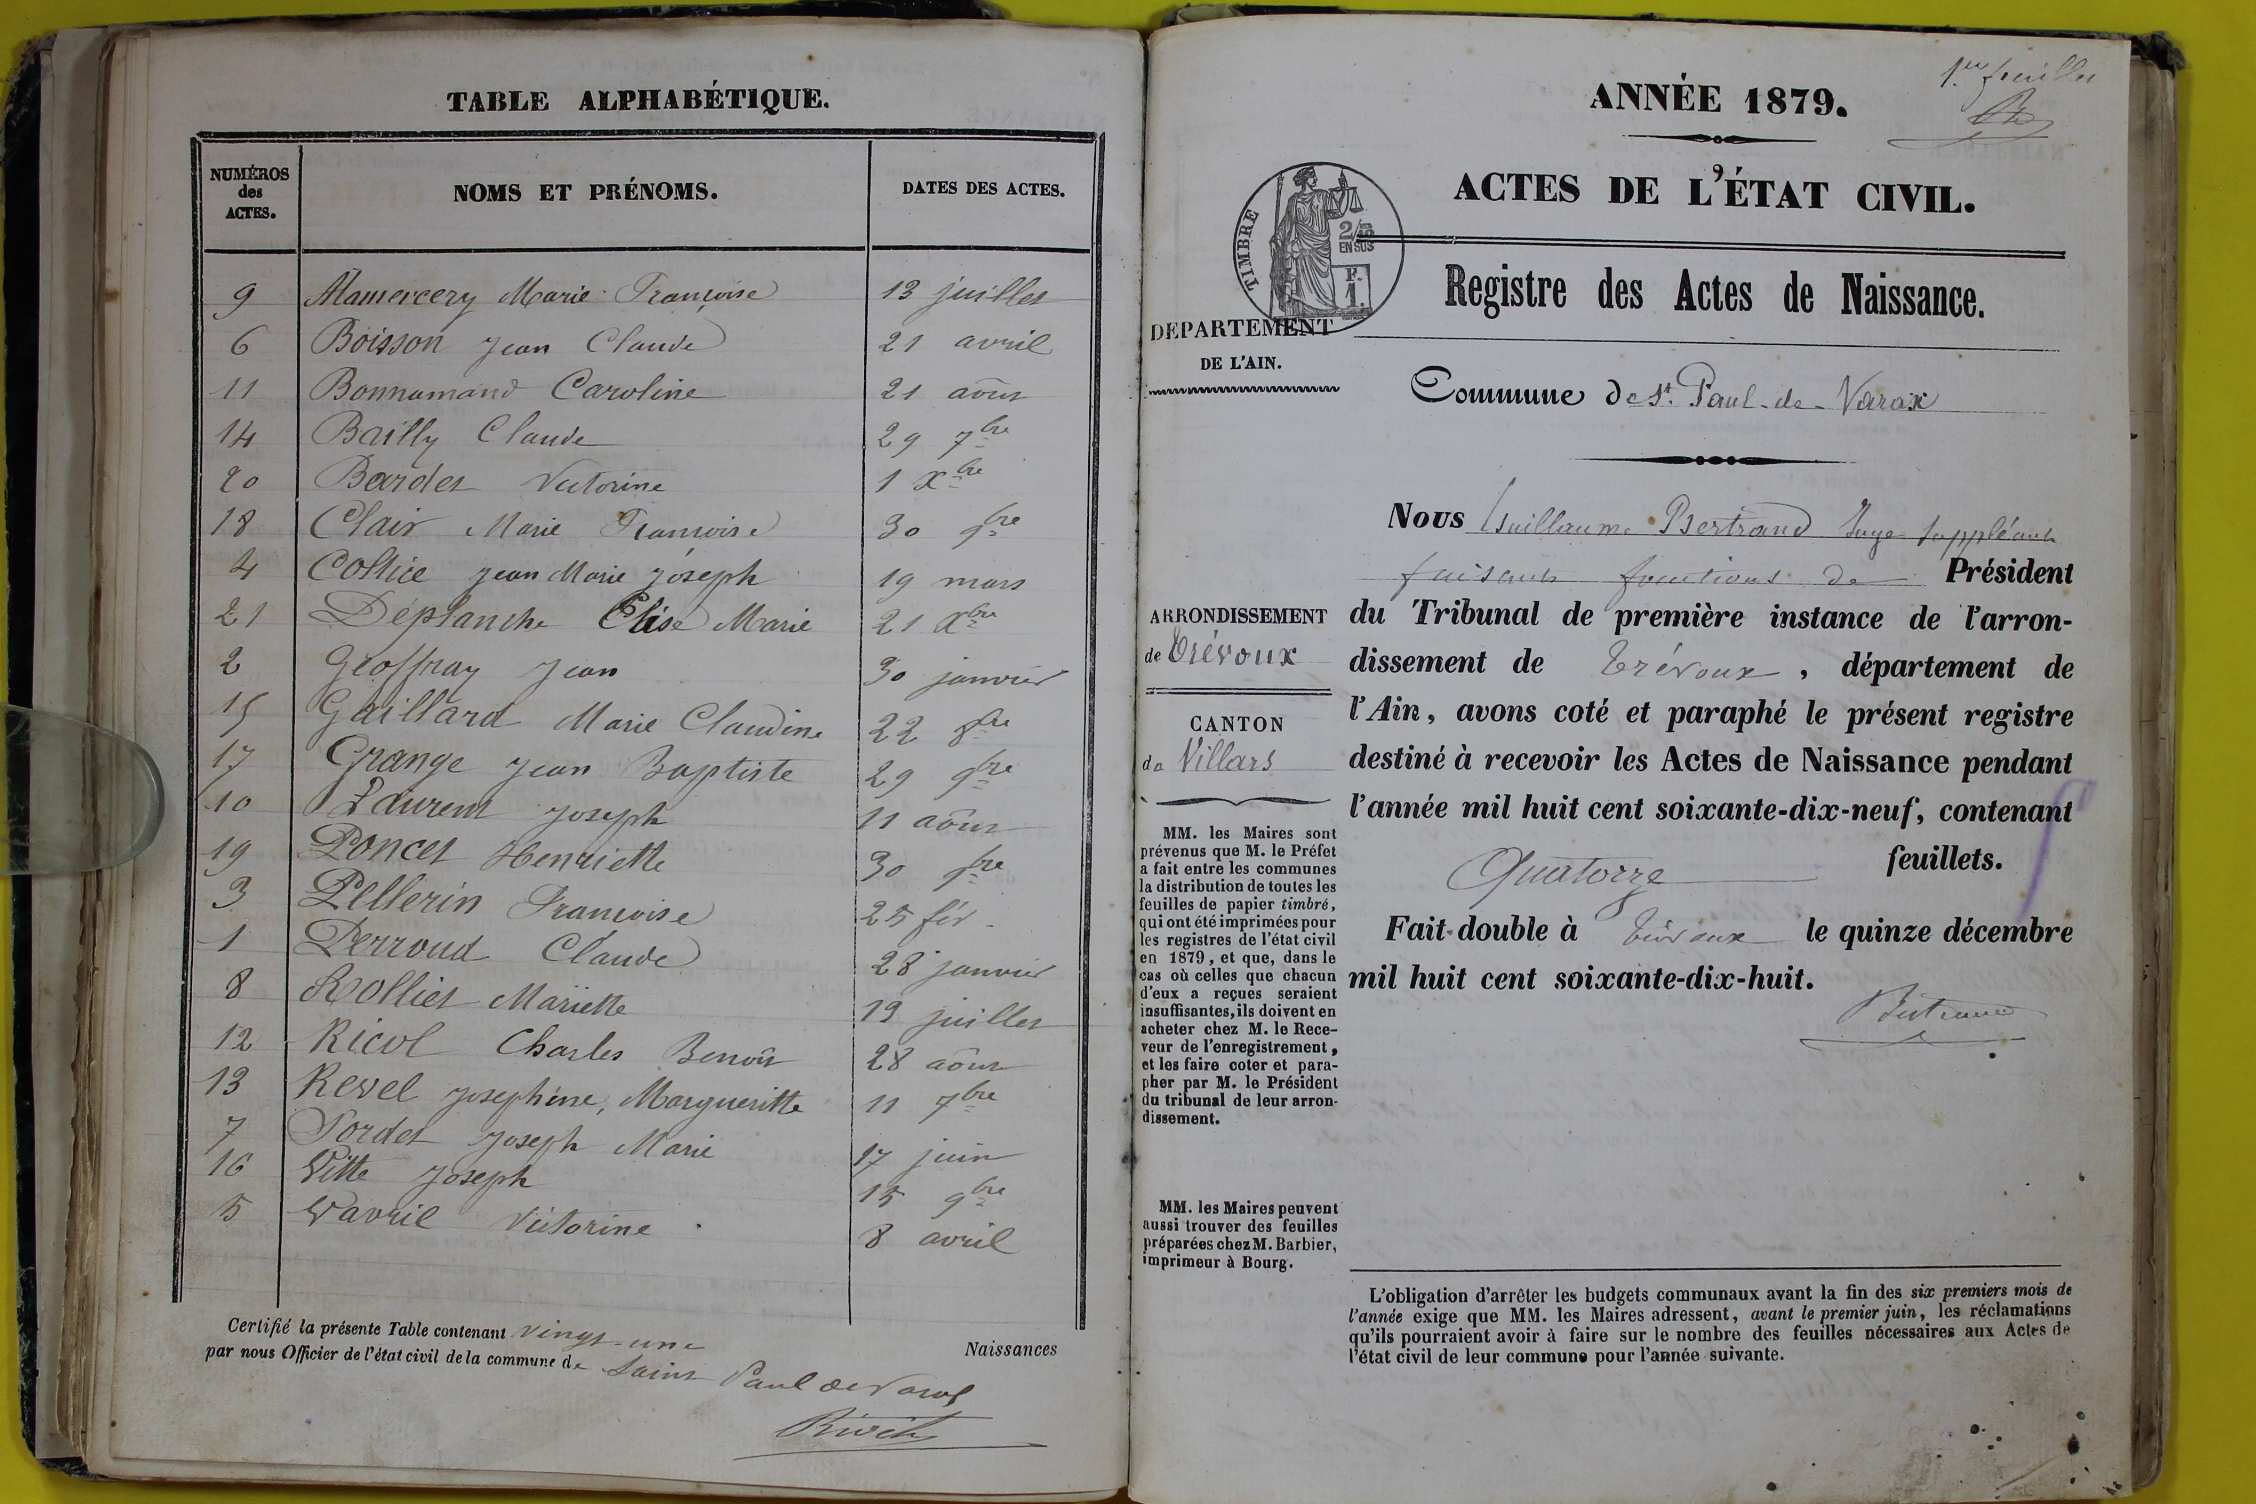 TABLE ALPHABÉTIQUE.
NUMÉROS des ACTES. NOMS ET PRÉNOMS. DATES DES ACTES.
9 Mamercery Marie Françoise 13 juillet
6 Boisson Jean Claude 21 avril
11 Bonnamand Caroline 21 août
14 Bailly Claude 29 7bre
20 Bardet Victorine 1 Xbre
18 Clair Marie Françoise 30 9bre
4 Collice Jean Marie Joseph 19 mars
21 Déplanche Elise Marie 21 Xbre
2 Geoffray Jean 30 janvier
15 Gaillard Marie Claudine 22 8bre
17 Grange Jean Baptiste 29 9bre
10 Laurent Joseph 11 août
19 Poncet Henriette 30 9bre
3 Pellerin Françoise 25 fév
1 Perroud Claude 28 janvier
8 Rollier Mariette 19 juillet
12 Ricol Charles Benoît 28 août
13 Revel Joséphine, Margueritte 11 7bre
7 Sordet Joseph Marie 17 juin
16 Vitte Joseph 15 9bre
5 Wavril Victorine 8 avril
Certifié la présente Table contenant vingt-une Naissances
par nous Officier de l'état civil de la commune de Saint Paul de Varax
1er feuillet
ANNÉE 1879.
ACTES DE L'ÉTAT CIVIL.
TIMBRE
2/10
EN SUS
F.
1.
Registre des Actes de Naissance.
DEPARTEMENT
DE L'AIN.
Commune de St. Paul-de-Varax
Nous Guillaume Bertrand Juge suppléant
faisant fonctions de Président
du Tribunal de première instance de l'arron-
dissement de Trévoux, département de
l'Ain, avons coté et paraphé le présent registre
destiné à recevoir les Actes de Naissance pendant
l'année mil huit cent soixante-dix-neuf, contenant
Quatorze feuillets.
Fait double à Trévoux le quinze décembre
mil huit cent soixante-dix-huit.
Bertrand
ARRONDISSEMENT
de Trévoux
CANTON
de Villars
MM. les Maires sont
prévenus que M. le Préfet
a fait entre les communes
la distribution de toutes les
feuilles de papier timbré,
qui ont été imprimées pour
les registres de l'état civil
en 1879, et que, dans le
cas où celles que chacun
d'eux a reçues seraient
insuffisantes, ils doivent en
acheter chez M. le Rece-
veur de l'enregistrement,
et les faire coter et para-
pher par M. le Président
du tribunal de leur arron-
dissement.
MM. les Maires peuvent
aussi trouver des feuilles
préparées chez M. Barbier,
imprimeur à Bourg.
L'obligation d'arrêter les budgets communaux avant la fin des six premiers mois de
l'année exige que MM. les Maires adressent, avant le premier juin, les réclamations
qu'ils pourraient avoir à faire sur le nombre des feuilles nécessaires aux Actes de
l'état civil de leur commune pour l'année suivante.